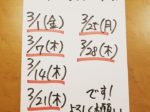 3/1(金) 3/25(月)
3/7(木) 3/28(木)
3/14(木)
3/21(木) です!
よろしくお願い